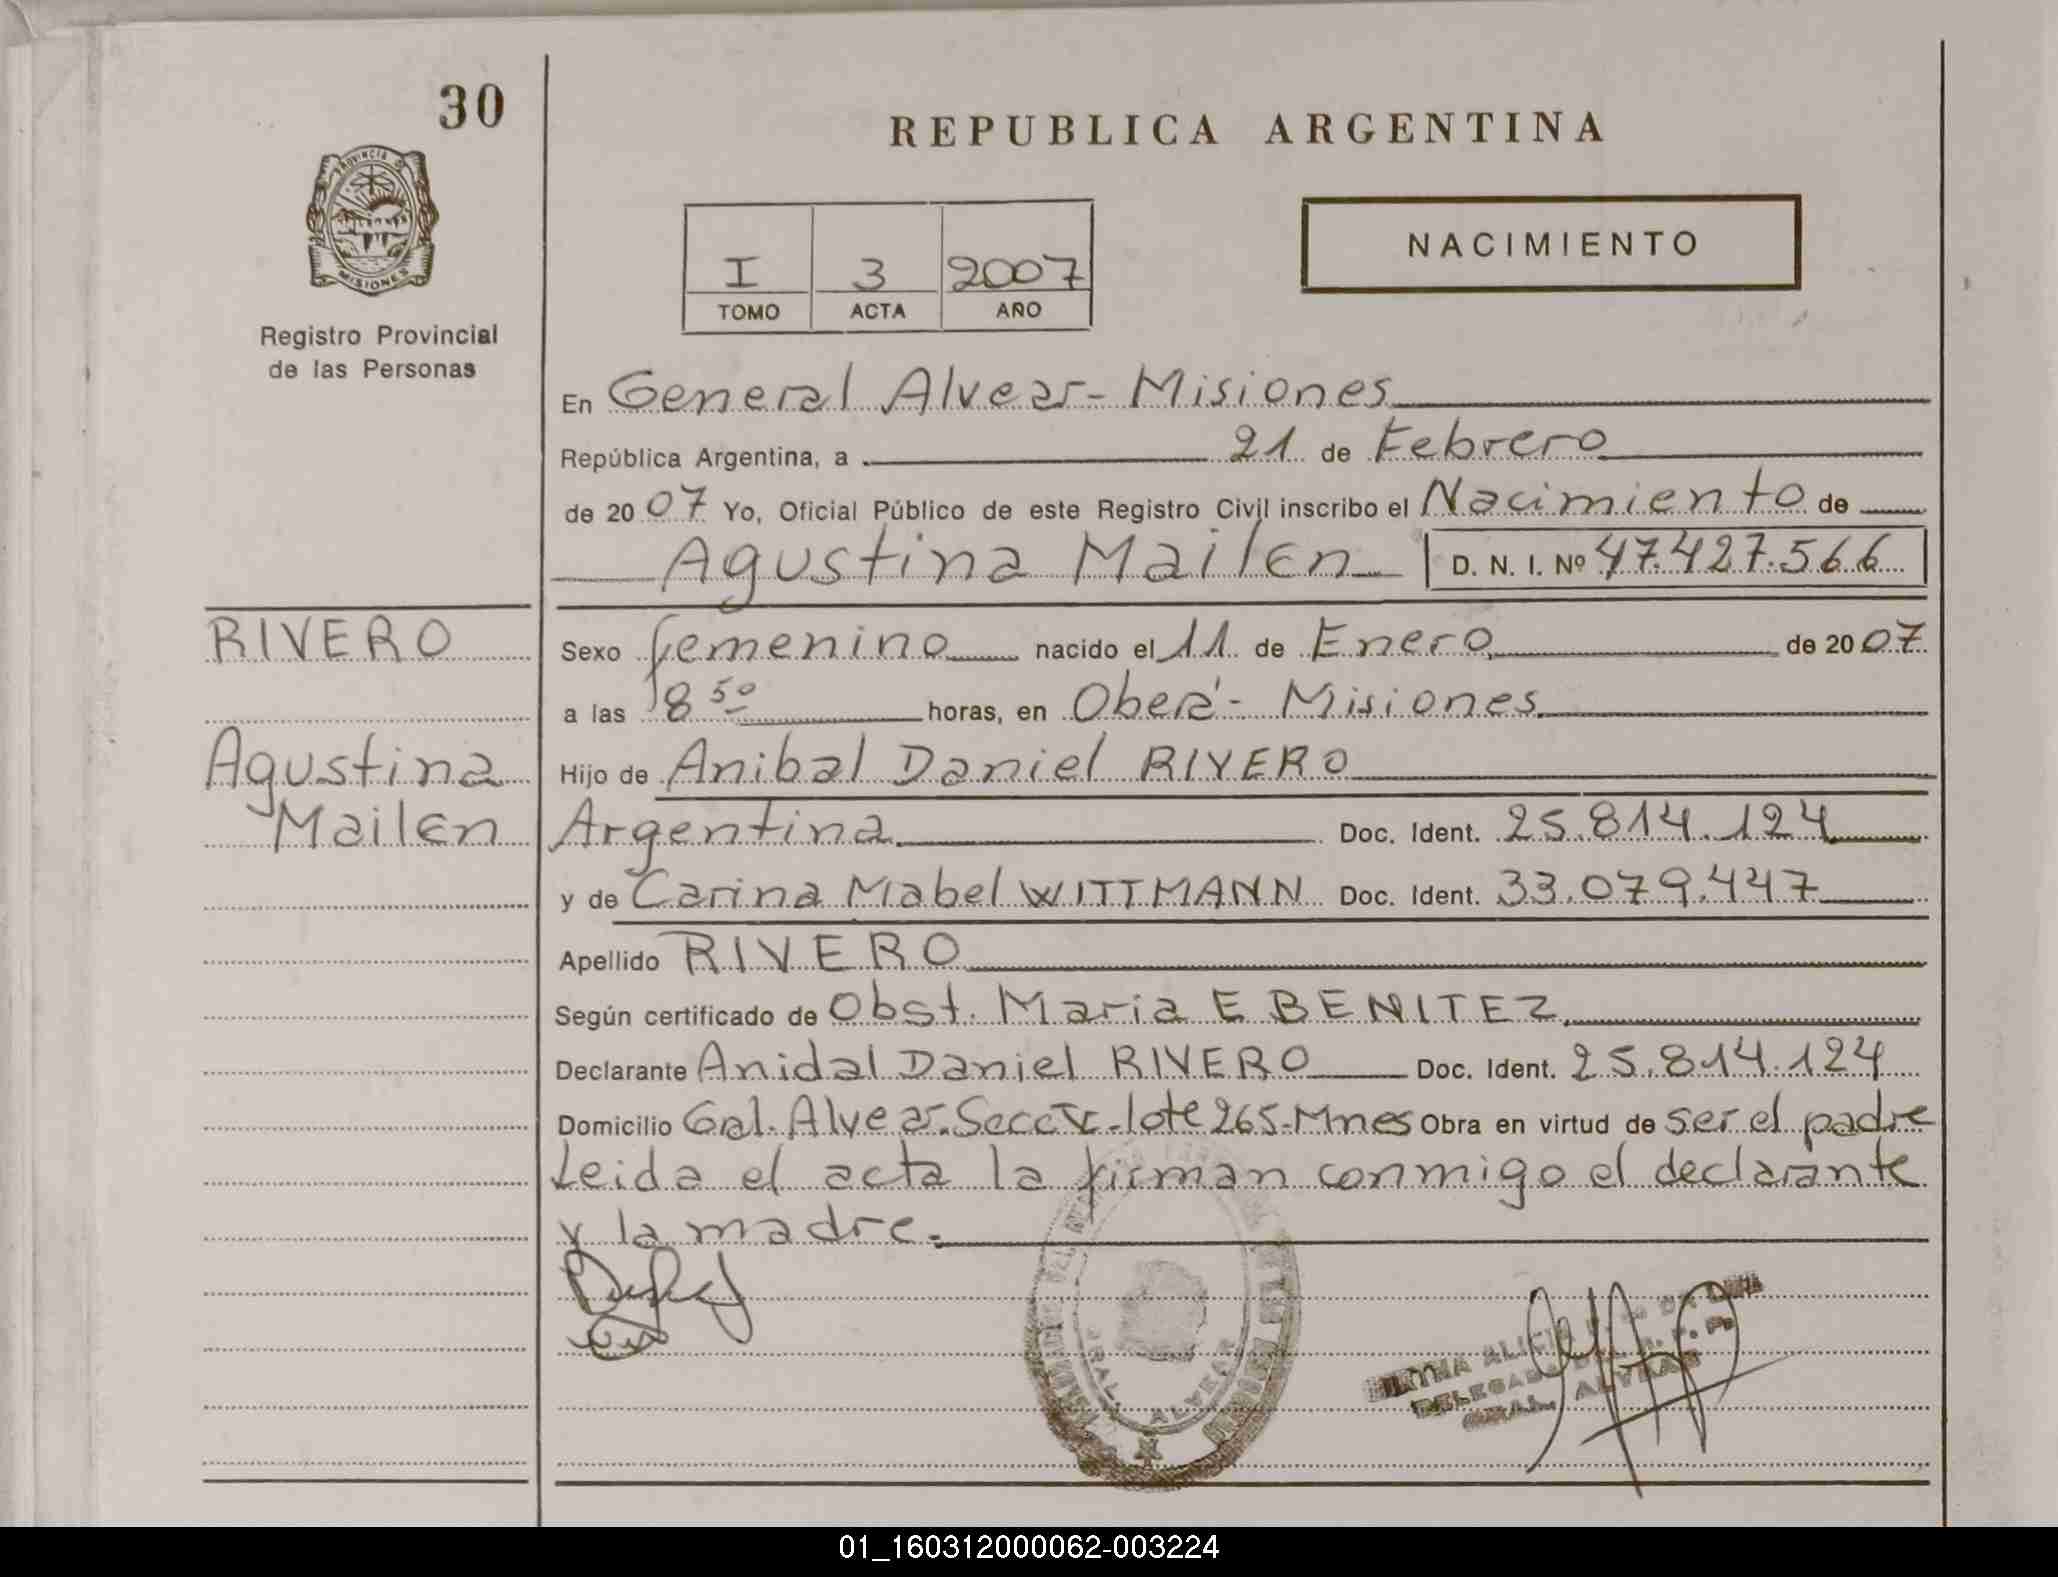 30
PROVINCIA D
MISIONES
Registro Provincial
de las Personas
REPUBLICA ARGENTINA
I 3 2007
TOMO ACTA AÑO
NACIMIENTO
En General Alvear - Misiones
República Argentina, a 21 de Febrero
de 20 07 Yo, Oficial Público de este Registro Civil inscribo el Nacimiento de
Agustina Mailen D. N. I. Nº 47.427.566
RIVERO
Agustina
Mailen
Sexo femenino nacido el 11 de Enero de 20 07
a las 8 50 horas, en Oberá - Misiones
Hijo de Anibal Daniel RIVERO
Argentina Doc. Ident. 25.814.124
y de Carina Mabel WITTMANN Doc. Ident. 33.079.447
Apellido RIVERO
Según certificado de Obst. Maria E BENITEZ
Declarante Anidal Daniel RIVERO Doc. Ident. 25.814.124
Domicilio Gral. Alvear. Secc lote 265-Mnes Obra en virtud de ser el padre
Leida el acta la firman conmigo el declarante
y la madre.
GRAL. ALVEAR
MIRTHA ALICIA
GRAL. ALVEAR
01_160312000062-003224